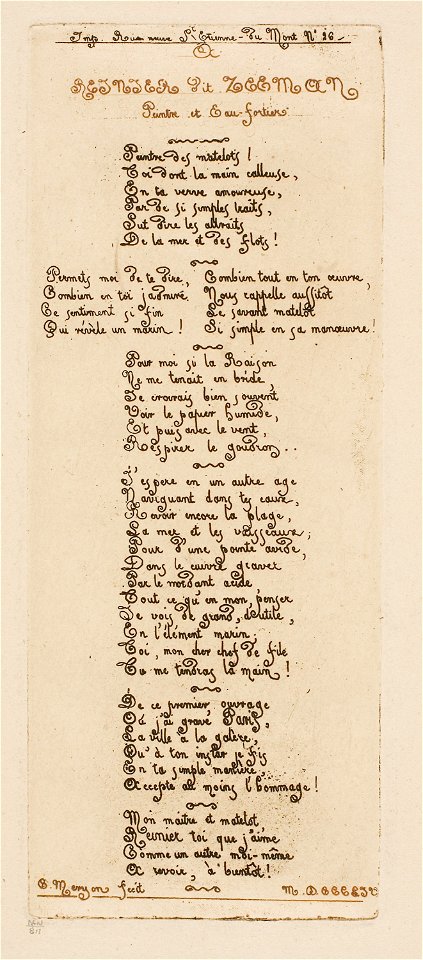 Imp. Rue neuve St. Etienne-du Mont No. 26
A
REINIER dit ZEEMAN
Peintre et Eau-fortier.
Peintre des matelots !
Toi dont la main calleuse,
En ta verve amoureuse,
Par de si simples traits,
Sut dire les attraits
De la mer et des flots !
Permets moi de te dire,
Combien en toi j'admire,
Ce sentiment si fin
Qui révèle un marin !
Combien tout en ton œuvre,
Nous rappelle aussitôt
Le savant matelot
Si simple en sa manœuvre !
Pour moi si la Raison
Ne me tenait en bride,
Je croirais bien souvent
Voir le papier humide,
Et puis avec le vent,
Respirer le goudron . .
J'espère en un autre age
Naviguant dans tes eaux,
Revoir encore la plage,
La mer et les vaisseaux ;
Pour d'une pointe avide,
Dans le cuivre graver
Par le mordant acide
Tout ce qu'en mon penser
Je vois de grand, d'utile,
En l'élément marin ;
Toi, mon cher chef de file
Tu me tendras la main !
De ce premier ouvrage
Où j'ai gravé Paris,
La ville à la galère,
Qu'à ton instar je fis
En ta simple manière,
Accepte au moins l'hommage !
Mon maitre et matelot
Reinier toi que j'aime
Comme un autre moi-même
A revoir, à bientôt !
C. Meryon fecit
M. DCCCLIV